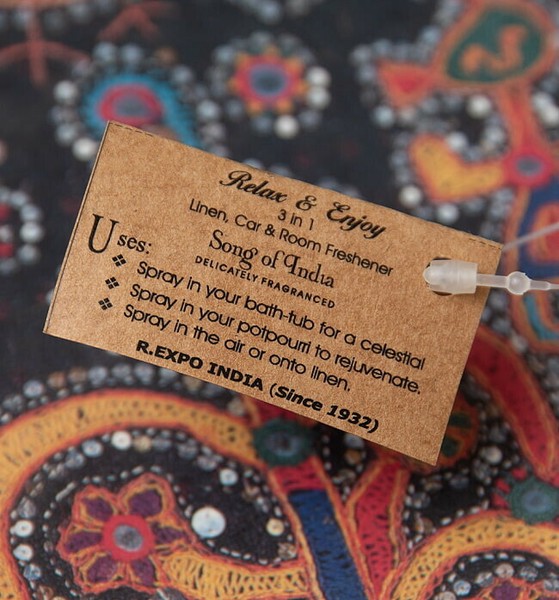 Relax & Enjoy
3 in 1
Linen, Car & Room Freshener
Song of India
DELICATELY FRAGRANCED
Uses:
❖ Spray in your bath-tub for a celestial
❖ Spray in your potpourri to rejuvenate.
❖ Spray in the air or onto linen.
R.EXPO INDIA (Since 1932)